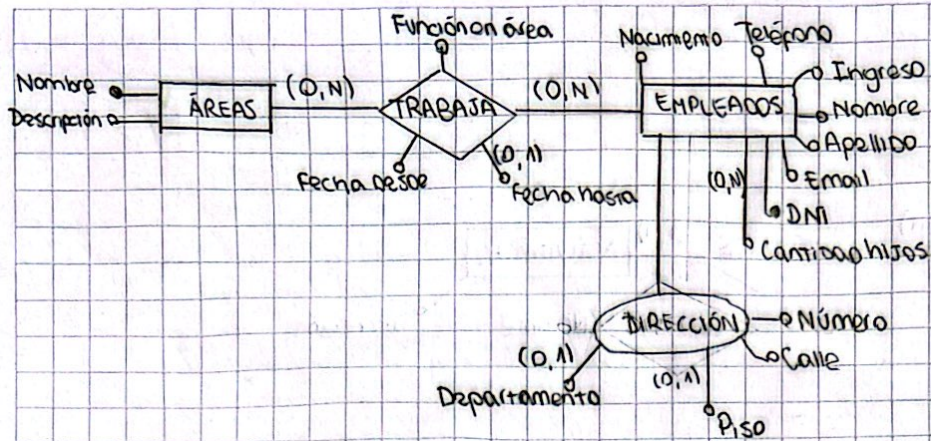 Función en área
Nacimiento Teléfono
Nombre
Descripción
ÁREAS
(0,N)
TRABAJA
(0,N)
EMPLEADOS
Ingreso
Nombre
Apellido
Email
DNI
(0,N)
Cantidad hijos
Fecha Desde
(0,1)
Fecha hasta
DIRECCIÓN
Número
Calle
(0,1)
Departamento
(0,1)
Piso